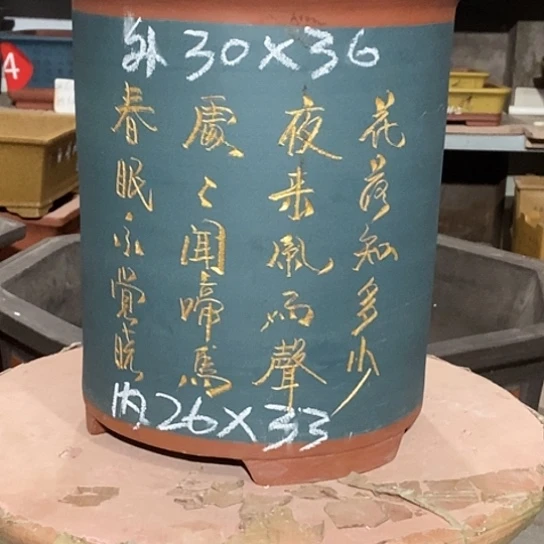 外30×36
春眠不覺曉
處〻聞啼鳥
夜来風雨聲
花落知多少
内26×33
4